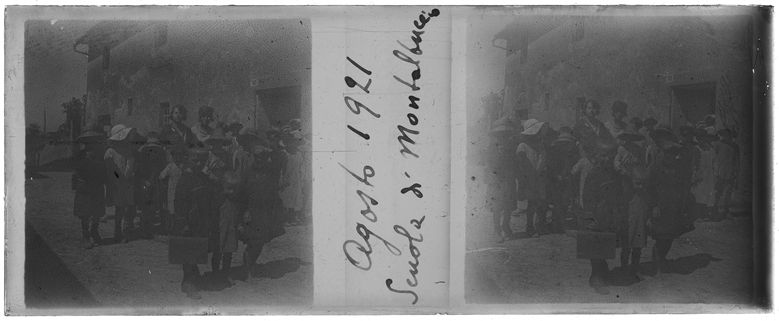 Agosto 1921
Scuola di Montalbuccio